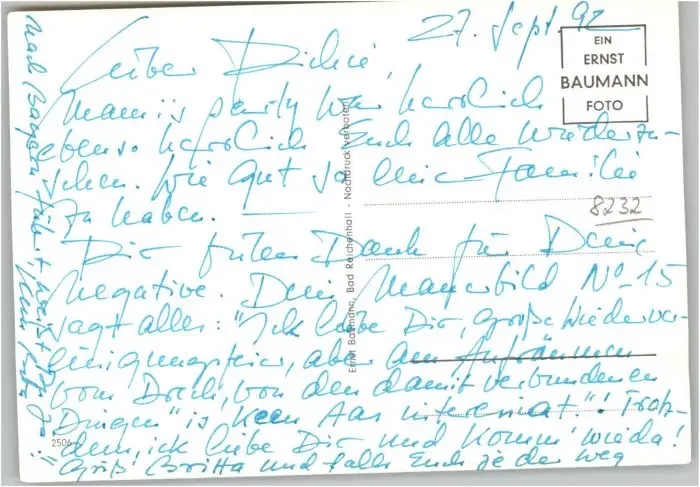 27. Sept. 92
EIN
ERNST
BAUMANN
FOTO
Lieber Dickie,
Mamis party war herrlich
ebenso herrlich Euch alle wiederzu-
sehen. Wie gut so eine Familie
zu haben.
8232
Dir Dank für Deine
Negative. Dein Mauerbild No 15
sagt alles: "Ich liebe Dir, große Wiederver-
einigungsfeier, aber am Aufräumen
vom Dreck, von den damit verbundenen
Dingen" is keen Aas interessiat"! Trotz-
dem, ick liebe Dir und komm' wieda!
Grüß Britta und falls Euch je der Weg
nach führt
Ernst Baumann, Bad Reichenhall - Nachdruck verboten
2506